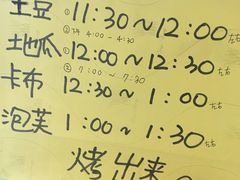 土豆 ①11:30~12:00左右
②下午 4:00-4:30
地瓜 ①12:00~12:30左右
②7:00-7:30
卡布 12:30~1:00左右
泡芙 1:00~1:30左右
烤出来